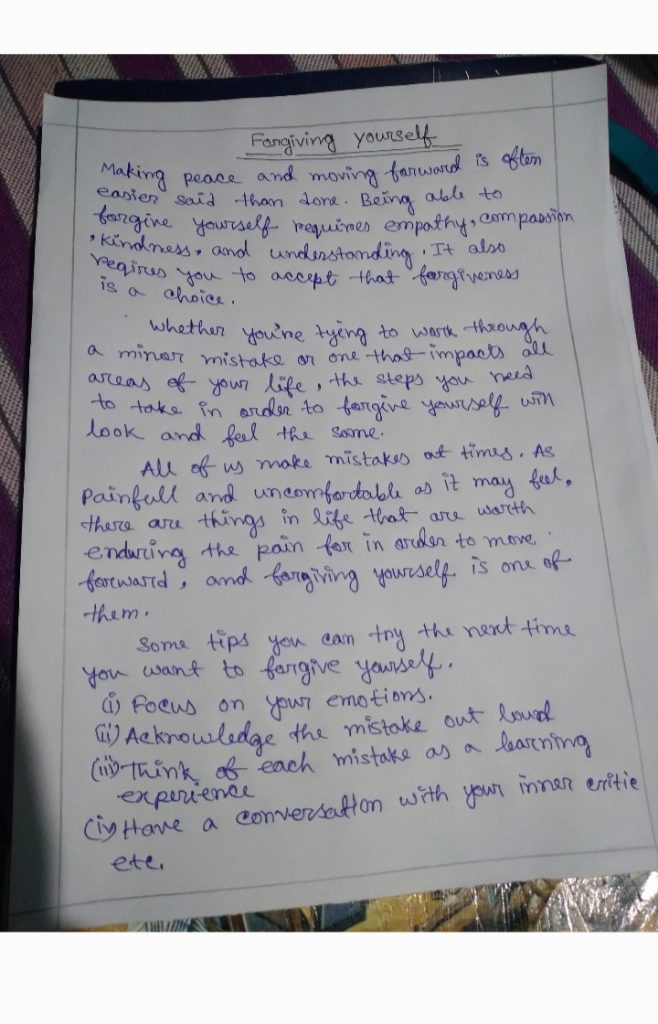 Forgiving yourself
Making peace and moving forward is often
easier said than done. Being able to
forgive yourself requires empathy, compassion
, kindness, and understanding. It also
reqires you to accept that forgiveness
is a choice.
Whether you're tyeng to work through
a minor mistake or one that impacts all
areas of your life, the steps you need
to take in order to forgive yourself will
look and feel the same.
All of us make mistakes at times. As
painfull and uncomfortable as it may feel,
there are things in life that are worth
enduring the pain for in order to move
forward, and forgiving yourself is one of
them.
Some tips you can try the next time
you want to forgive yourself.
(i) Focus on your emotions.
(ii) Acknowledge the mistake out loud
(iii) Think of each mistake as a learning
experience
(iv) Have a conversation with your inner critic
etc.